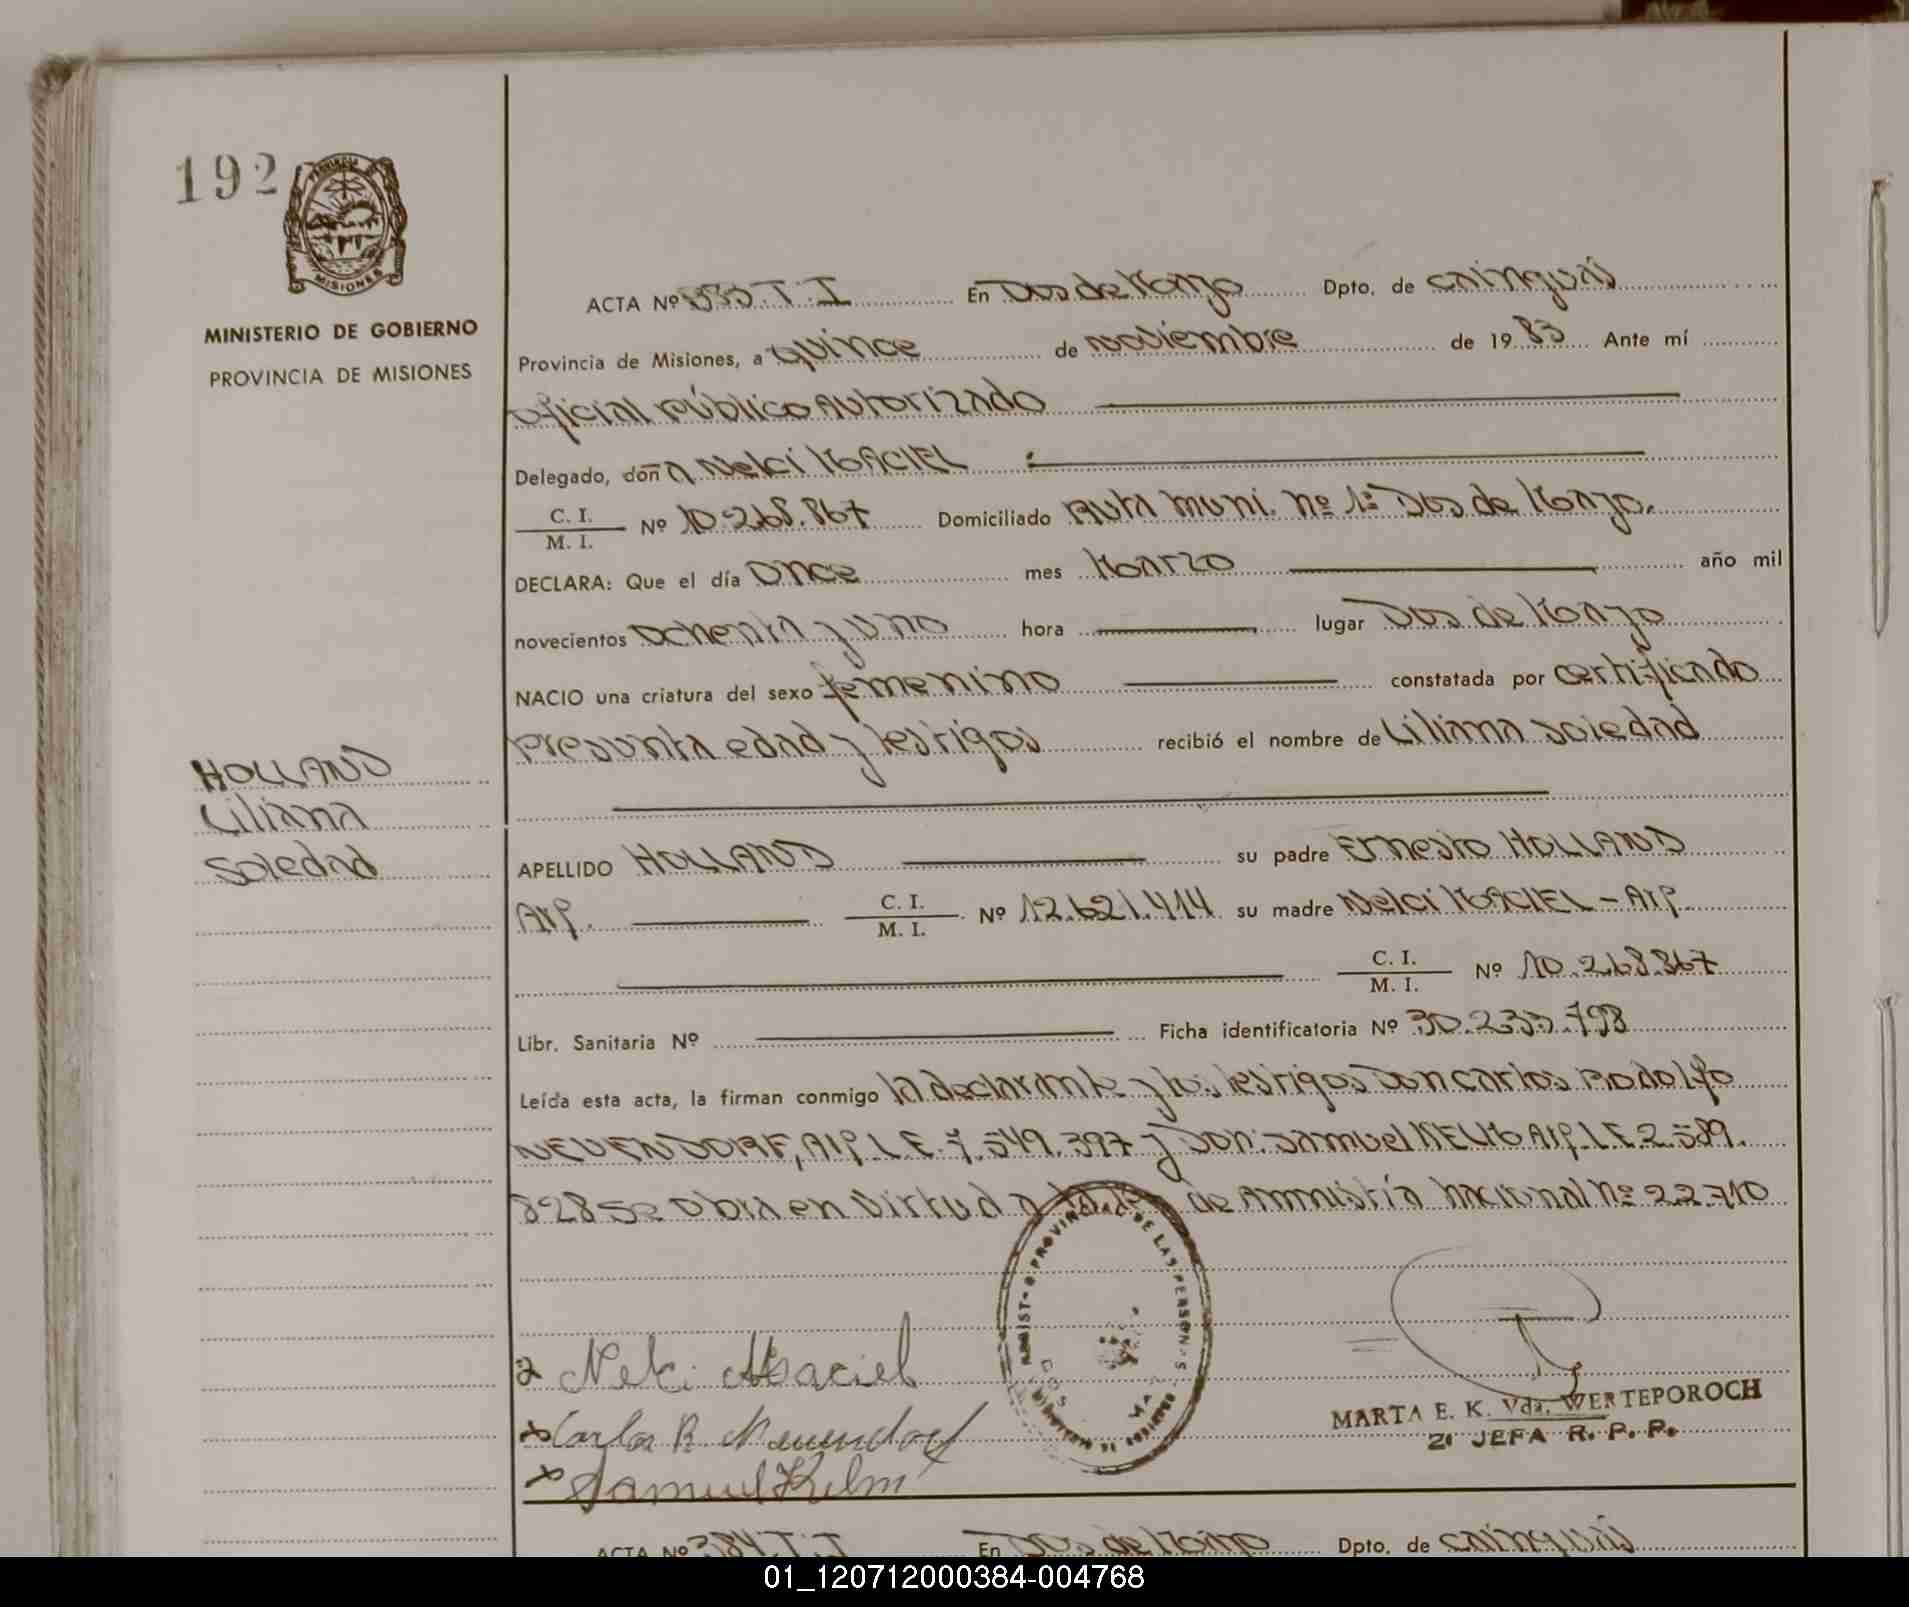 192
PROVINCIA DE
MISIONES
MINISTERIO DE GOBIERNO
PROVINCIA DE MISIONES
HOLLAND
Liliana
Soledad
ACTA Nº 383 T. I En Dos de Mayo Dpto. de Cainguás
Provincia de Misiones, a quince de noviembre de 1983 Ante mí
Oficial Público Autorizado
Delegado, doña Nelci MACIEL
C. I.
M. I. Nº 10.268.867 Domiciliado Ruta Muni. Nº 1: Dos de Mayo.
DECLARA: Que el día once mes Marzo año mil
novecientos ochenta y uno hora lugar Dos de Mayo
NACIO una criatura del sexo femenino constatada por certificado
presunta edad y testigos recibió el nombre de Liliana Soledad
APELLIDO HOLLAND su padre Ernesto HOLLAND
Arg. C. I.
M. I. Nº 12.621.414 su madre Nelci MACIEL - Arg.
C. I.
M. I. Nº 10.268.867
Libr. Sanitaria Nº Ficha identificatoria Nº 30.233.798
Leída esta acta, la firman conmigo la declarante y los testigos Don Carlos Rodolfo
NEUENDORF, Arg. L.E. 7.549.397 y Don: Samuel Arg. L.E. 2.589.
828 se obra en virtud a de Amnistía Nacional Nº 22.710
x Nelci Maciel
x Carlos R. Neuendorf
x Samuel
PROVINCIAL DE LAS PERSONAS
MARTA E. K. Vda. WERTEPOROCH
2ª JEFA R. P. P.
ACTA Nº 384 T. I En Dos de Mayo Dpto. de Cainguás
01_120712000384-004768